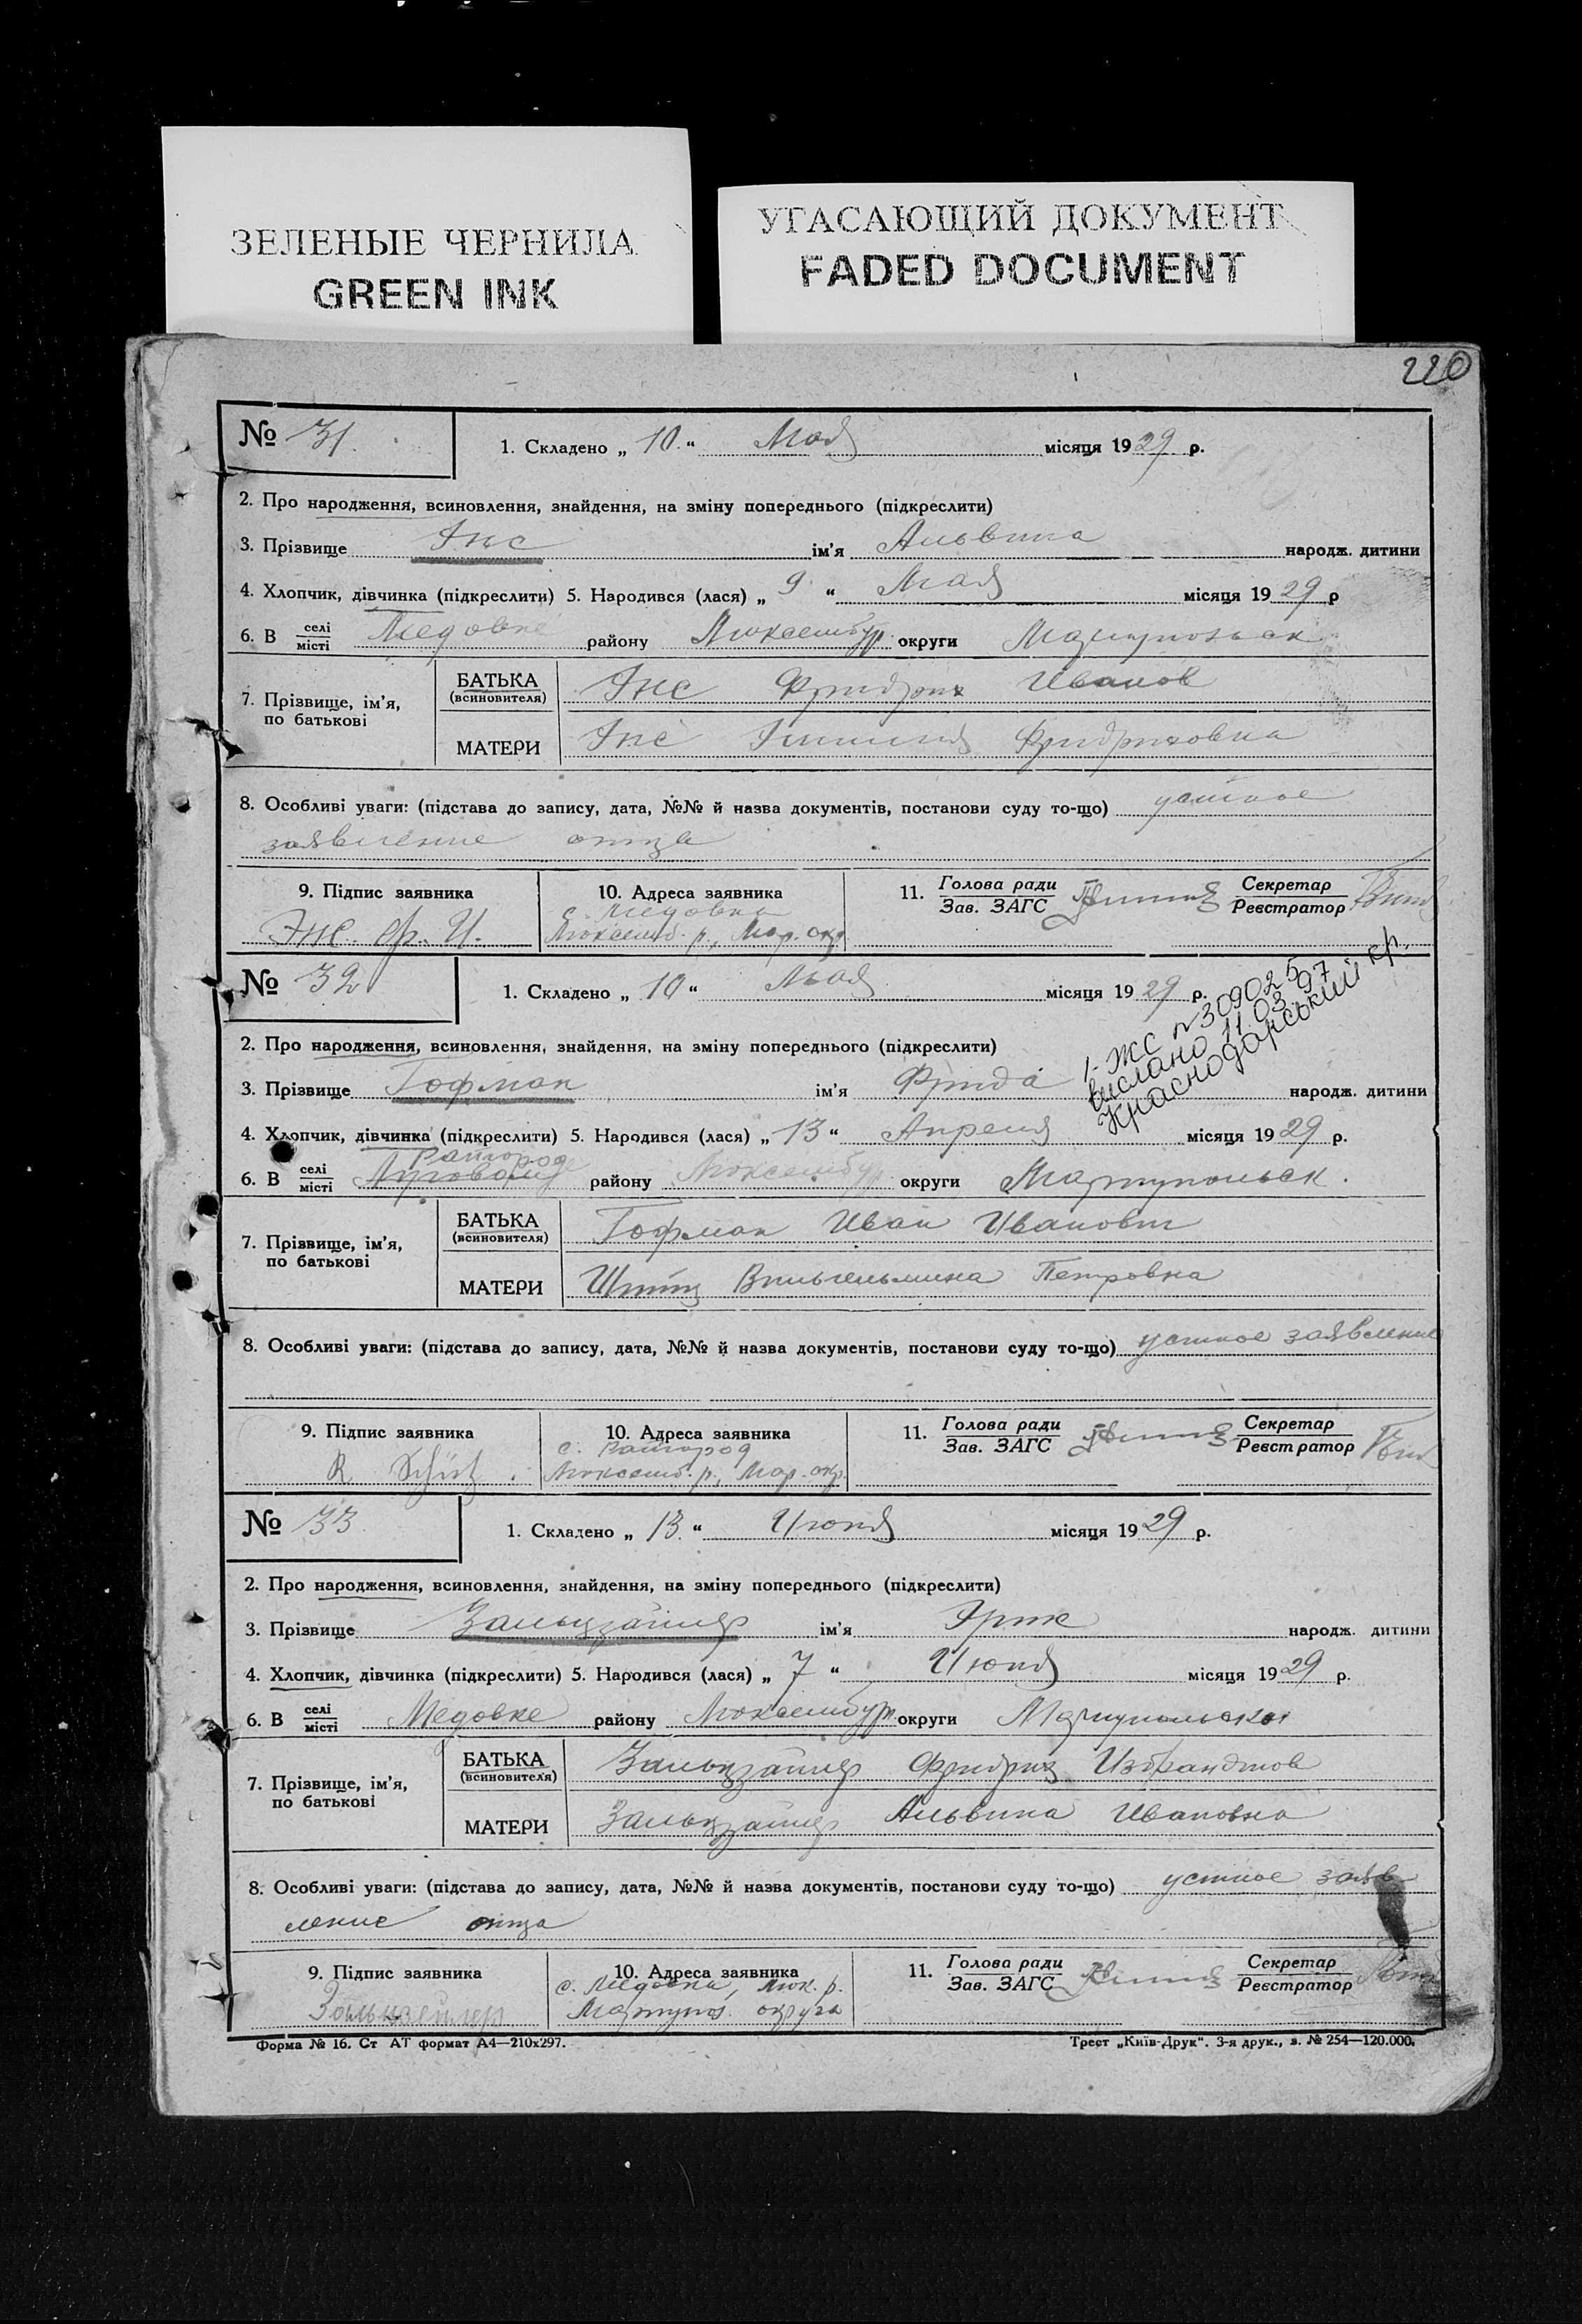 ЗЕЛЕНЫЕ ЧЕРНИЛА
GREEN INK
УГАСАЮЩИЙ ДОКУМЕНТ
FADED DOCUMENT
220
№ 31. 1. Складено „ 10 “ Мая місяця 1929 р.
2. Про народження, всиновлення, знайдення, на зміну попереднього (підкреслити)
3. Прізвище Энс ім'я Альвина народж. дитини
4. Хлопчик, дівчинка (підкреслити) 5. Народився (лася) „ 9 “ Мая місяця 1929 р
6. В селі місті Медовке району Люксембур округи Мариупольск
7. Прізвище, ім'я, по батькові
БАТЬКА (всиновителя) Энс Фридрих Иванов
МАТЕРИ Энс Эмилия Фридриховна
8. Особливі уваги: (підстава до запису, дата, №№ й назва документів, постанови суду то-що) устное
заявление отца
9. Підпис заявника 10. Адреса заявника 11. Голова ради Зав. ЗАГС Секретар Реєстратор
Энс. Ф. И. с. Медовка
Люксемб. р., Мар. окр.
№ 32 1. Складено „ 10 “ Мая місяця 1929 р.
1-ЖС № 309025
вислано 11.03.97
Краснодарський кр.
2. Про народження, всиновлення, знайдення, на зміну попереднього (підкреслити)
3. Прізвище Гофман ім'я Фрида народж. дитини
4. Хлопчик, дівчинка (підкреслити) 5. Народився (лася) „ 13 “ Апреля місяця 1929 р.
Ратгород
6. В селі місті району Люксембур округи Мариупольск.
7. Прізвище, ім'я, по батькові
БАТЬКА (всиновителя) Гофман Иван Иванович
МАТЕРИ Вильгельмина Петровна
8. Особливі уваги: (підстава до запису, дата, №№ й назва документів, постанови суду то-що) устное заявление
9. Підпис заявника 10. Адреса заявника 11. Голова ради Зав. ЗАГС Секретар Реєстратор
с. Ратгород
Люксемб. р., Мар. окр.
№ 33 1. Складено „ 13 “ Июня місяця 1929 р.
2. Про народження, всиновлення, знайдення, на зміну попереднього (підкреслити)
3. Прізвище Зальцзайлер ім'я Эрик народж. дитини
4. Хлопчик, дівчинка (підкреслити) 5. Народився (лася) „ 7 “ Июня місяця 1929 р.
6. В селі місті Медовке району Люксембур округи
7. Прізвище, ім'я, по батькові
БАТЬКА (всиновителя) Зальцзайлер Фридрих
МАТЕРИ Зальцзайлер Альвина Ивановна
8. Особливі уваги: (підстава до запису, дата, №№ й назва документів, постанови суду то-що) устное заяв
ление отца
9. Підпис заявника 10. Адреса заявника 11. Голова ради Зав. ЗАГС Секретар Реєстратор
с. Медовка, Люк. р.
округа
Форма № 16. Ст АТ формат А4—210х297. Трест „Київ-Друк“. 3-я друк., з. № 254—120.000.